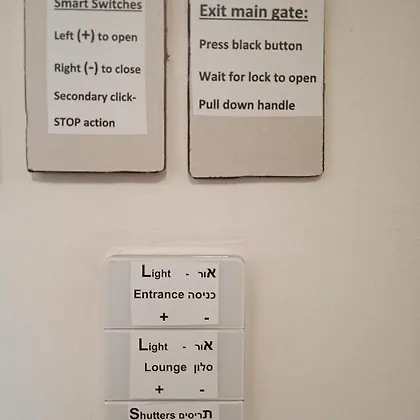 Smart Switches
Left (+) to open
Right (-) to close
Secondary click-
STOP action
Exit main gate:
Press black button
Wait for lock to open
Pull down handle
Light - אור
Entrance כניסה
+ -
Light - אור
Lounge סלון
+ -
Shutters תריסים